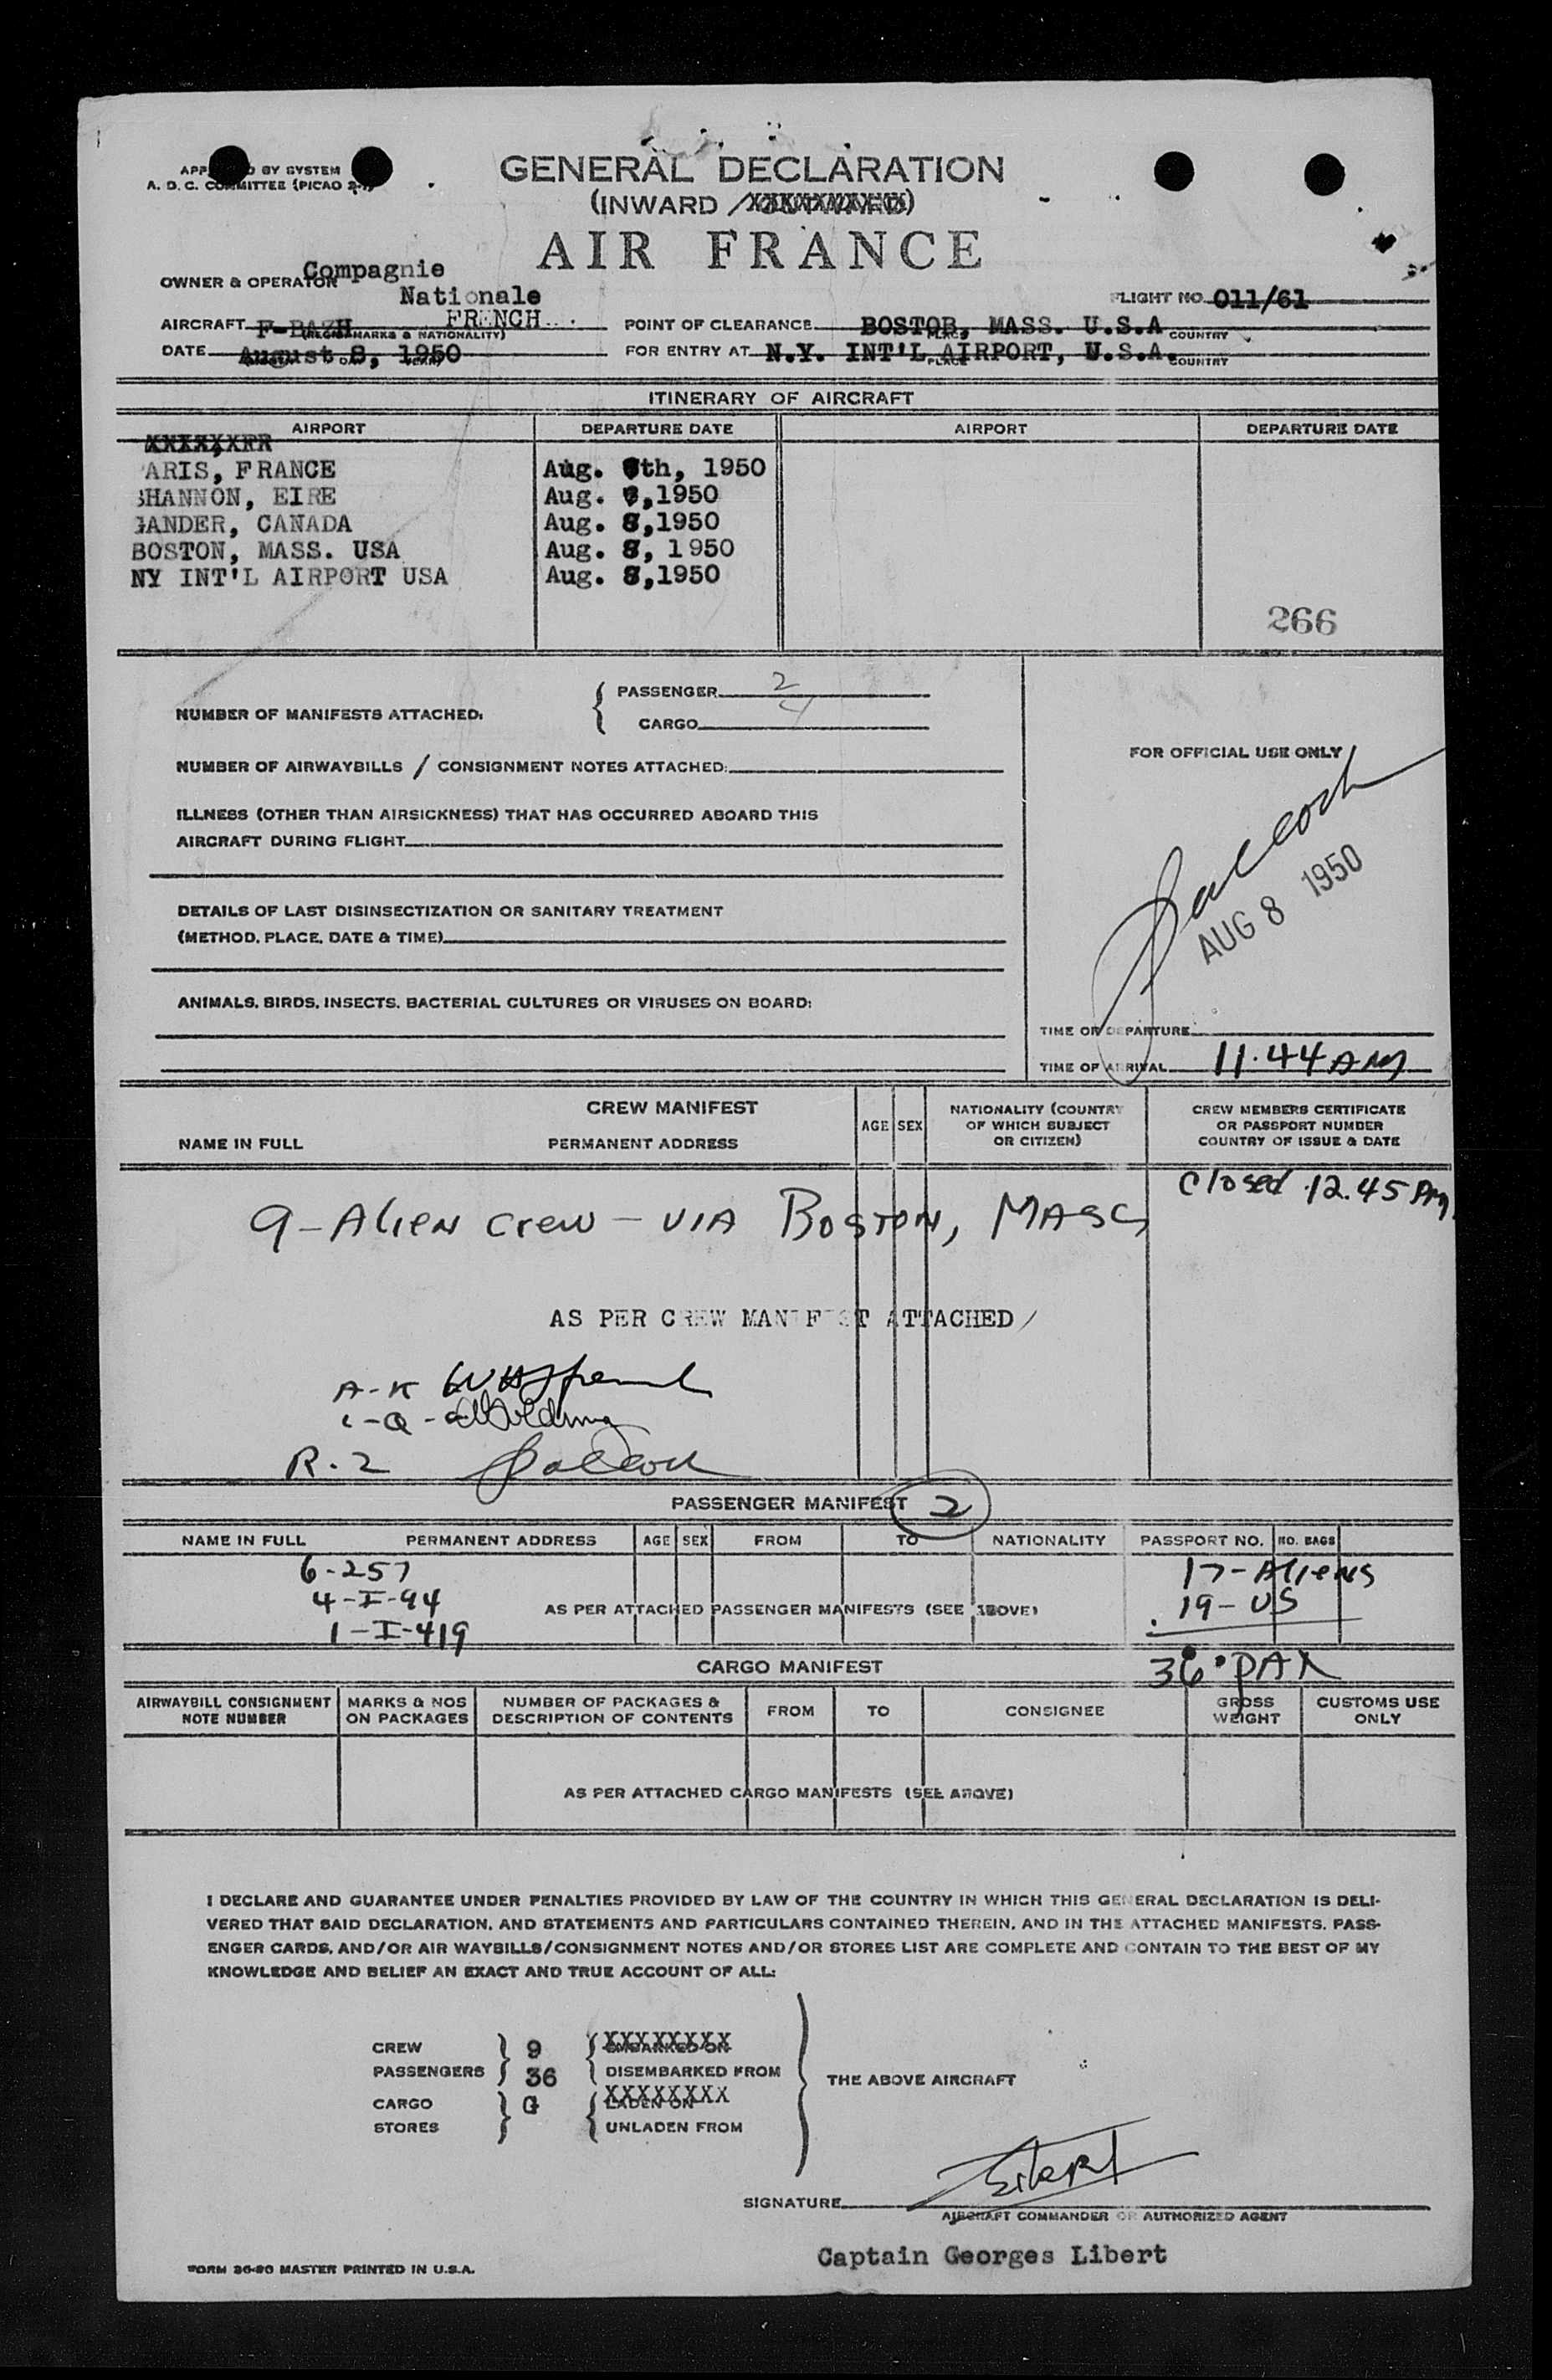 GENERAL DECLARATION
(INWARD /
AIR FRANCE
BY SYSTEM
A. D. C. COMMITTEE (PICAO
OWNER & OPERATOR Compagnie
Nationale
FLIGHT NO. 011/61
AIRCRAFT F-BAZH FRENCH
(REGIS. MARKS & NATIONALITY)
POINT OF CLEARANCE BOSTOB, MASS. U.S.A
PLACE COUNTRY
DATE August 8, 1950
FOR ENTRY AT N.Y. INT'L AIRPORT, U.S.A.
PLACE COUNTRY
ITINERARY OF AIRCRAFT
AIRPORT DEPARTURE DATE AIRPORT DEPARTURE DATE
ARIS, FRANCE Aug. th, 1950
SHANNON, EIRE Aug. ,1950
GANDER, CANADA Aug. 8,1950
BOSTON, MASS. USA Aug. 8, 1950
NY INT'L AIRPORT USA Aug. 8,1950
266
NUMBER OF MANIFESTS ATTACHED:
PASSENGER 2
CARGO 4
FOR OFFICIAL USE ONLY
NUMBER OF AIRWAYBILLS / CONSIGNMENT NOTES ATTACHED:
ILLNESS (OTHER THAN AIRSICKNESS) THAT HAS OCCURRED ABOARD THIS
AIRCRAFT DURING FLIGHT
AUG 8 1950
DETAILS OF LAST DISINSECTIZATION OR SANITARY TREATMENT
(METHOD, PLACE, DATE & TIME)
ANIMALS, BIRDS, INSECTS, BACTERIAL CULTURES OR VIRUSES ON BOARD:
TIME OF DEPARTURE
TIME OF ARRIVAL 11.44 AM
CREW MANIFEST
NAME IN FULL PERMANENT ADDRESS
AGE SEX
NATIONALITY (COUNTRY
OF WHICH SUBJECT
OR CITIZEN)
CREW MEMBERS CERTIFICATE
OR PASSPORT NUMBER
COUNTRY OF ISSUE & DATE
Closed 12.45 PM
9 - Alien Crew - VIA BOSTON, MASS
AS PER CREW MANIFEST ATTACHED/
A-K
R.2
PASSENGER MANIFEST 2
NAME IN FULL PERMANENT ADDRESS AGE SEX FROM TO NATIONALITY PASSPORT NO. NO. BAGS
6-257
17-Aliens
4-I-94
19-US
AS PER ATTACHED PASSENGER MANIFESTS (SEE ABOVE)
1-I-419
36 PAX
CARGO MANIFEST
AIRWAYBILL CONSIGNMENT
NOTE NUMBER
MARKS & NOS
ON PACKAGES
NUMBER OF PACKAGES &
DESCRIPTION OF CONTENTS
FROM TO CONSIGNEE
GROSS
WEIGHT
CUSTOMS USE
ONLY
AS PER ATTACHED CARGO MANIFESTS (SEE ABOVE)
I DECLARE AND GUARANTEE UNDER PENALTIES PROVIDED BY LAW OF THE COUNTRY IN WHICH THIS GENERAL DECLARATION IS DELI-
VERED THAT SAID DECLARATION, AND STATEMENTS AND PARTICULARS CONTAINED THEREIN, AND IN THE ATTACHED MANIFESTS, PASS-
ENGER CARDS, AND/OR AIR WAYBILLS/CONSIGNMENT NOTES AND/OR STORES LIST ARE COMPLETE AND CONTAIN TO THE BEST OF MY
KNOWLEDGE AND BELIEF AN EXACT AND TRUE ACCOUNT OF ALL:
CREW 9 EMBARKED ON
PASSENGERS 36 DISEMBARKED FROM
THE ABOVE AIRCRAFT
CARGO LADEN ON
STORES UNLADEN FROM
SIGNATURE
AIRCRAFT COMMANDER OR AUTHORIZED AGENT
Captain Georges Libert
FORM 36-20 MASTER PRINTED IN U.S.A.